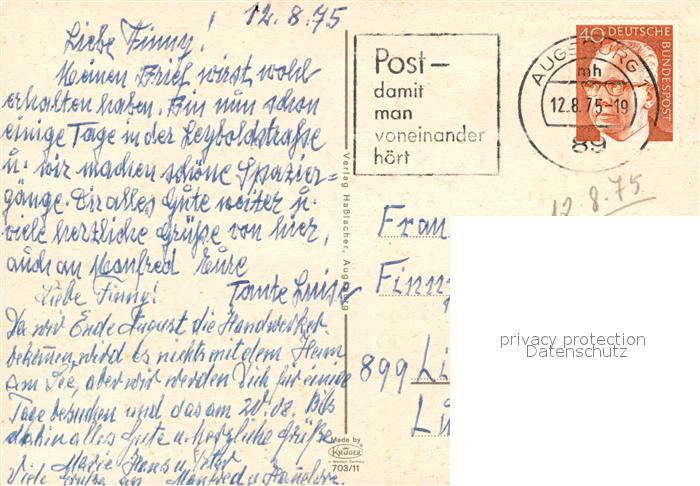 12.8.75
Liebe Finny!
Meinen Brief wirst wohl
erhalten haben. Bin nun schon
einige Tage in der Leyboldstraße
u. wir machen schöne Spazier=
gänge. Dir alles Gute weiter u.
viele herzliche Grüße von hier,
auch an Manfred Eure
Tante Luise
Liebe Finny!
Da wir Ende August die Handwerker
bekommen wird es nichts mit dem Heim
am See, aber wir werden Dich für einige
Tage besuchen und das am 20.08. Bis
dahin alles Gute u. herzliche Grüße
Marie Hans u. Peter
Viele Grüße an Manfred u.
Verlag Haßlacher, Augsburg
Made by
KRÜGER
703/11
Post—
damit
man
voneinander
hört
AUGSBURG
mh
12.8.75-19
89
40 DEUTSCHE
BUNDESPOST
12.8.75
Frau
Finny
899 Li
privacy protection
Datenschutz